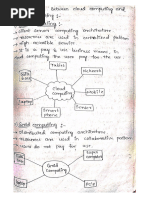 between cloud computing and
computing :-
client server computing architecture
resources are used in centralized pattern
High accessible service
It is a pay & use business means, In
cloud computing the user pay for the use.
Tablet
Network
Mobile
Cloud
Computing
Smart
Phone
Server
Grid computing :-
Distributed computing architecture
resources are used in collaborative pattern
users do not pay for use.
Grid
Computing